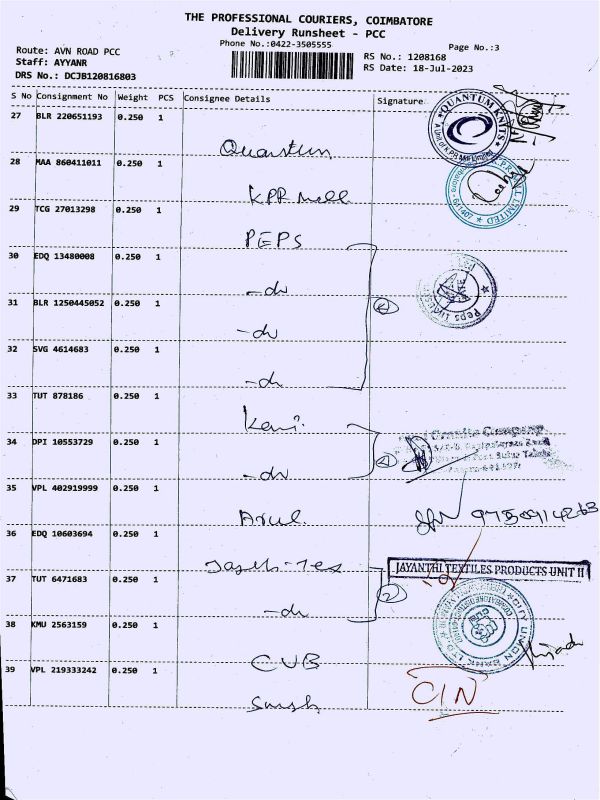 THE PROFESSIONAL COURIERS, COIMBATORE
Delivery Runsheet - PCC
Phone No.:0422-3505555
Page No.:3
Route: AVN ROAD PCC
Staff: AYYANR
DRS No.: DCJB120816803
RS No.: 1208168
RS Date: 18-Jul-2023
S No Consignment No Weight PCS Consignee Details Signature
27 BLR 220651193 0.250 1
Quantum
QUANTUM KNITS
28 MAA 860411011 0.250 1
KPR mill
29 TCG 27013298 0.250 1
PEPS
30 EDQ 13480008 0.250 1
-do
31 BLR 1250445052 0.250 1
-do
32 SVG 4614683 0.250 1
-do
33 TUT 878186 0.250 1
34 DPI 10553729 0.250 1
-do
Granite Company
35 VPL 402919999 0.250 1
Arul.
36 EDQ 10603694 0.250 1
JAYANTHI TEXTILES PRODUCTS UNIT II
37 TUT 6471683 0.250 1
-do
2
38 KMU 2563159 0.250 1
CUB
CITY UNION BANK LTD
39 VPL 219333242 0.250 1